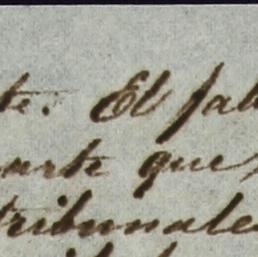 te. El fal
arte que
tribunale